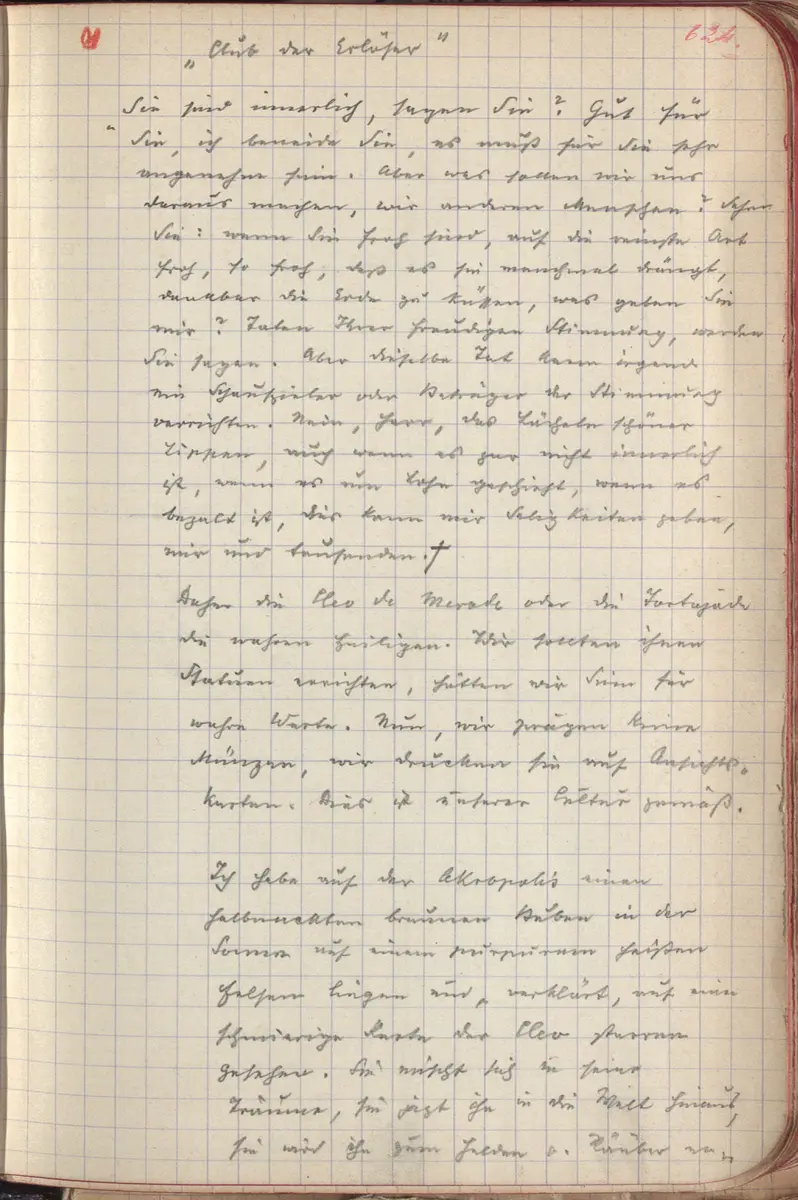 621.
„Club der Erlöser“
Sie sind innerlich, sagen Sie? Gut für
Sie, ich beneide Sie, es muß für Sie sehr
angenehm sein. Aber was sollen wir uns
daraus machen, wir anderen Menschen? Sehen
Sie: wenn Sie froh sind, auf die reinste Art
froh, so froh, daß es sie manchmal drängt,
die Erde zu küssen, was geben Sie
mir? Taten Ihrer freudigen Stimmung, werden
Sie sagen. Aber dieselbe Tat kann irgend
ein Schauspieler oder Betrüger der Stimmung
verrichten. Nein, Herr, das Lächeln schöner
Lippen, auch wenn es gar nicht innerlich
ist, wenn es um Lohn geschieht, wenn es
bezalt ist, dies kann mir Seligkeiten geben,
mir und tausenden.†
Daher die Cleo de Merode oder die Tortajada
die wahren Heiligen. Wir sollten ihnen
Statuen errichten, hätten wir Sinn für
wahre Werte. Nun, wir prägen keine
Münzen, wir drucken sie auf Ansichts-
karten. Dies ist unserer Cultur gemäß.
Ich habe auf der Akropolis einen
halbnackten braunen Buben in der
Sonne auf einem purpurnen heißen
Felsen liegen und, verklärt, auf eine
schmierige Karte der Cleo starren
gesehen. Sie mischt sich in seine
Träume, sie jagt ihn in die Welt hinaus,
sie wird ihn zum Helden o. Räuber